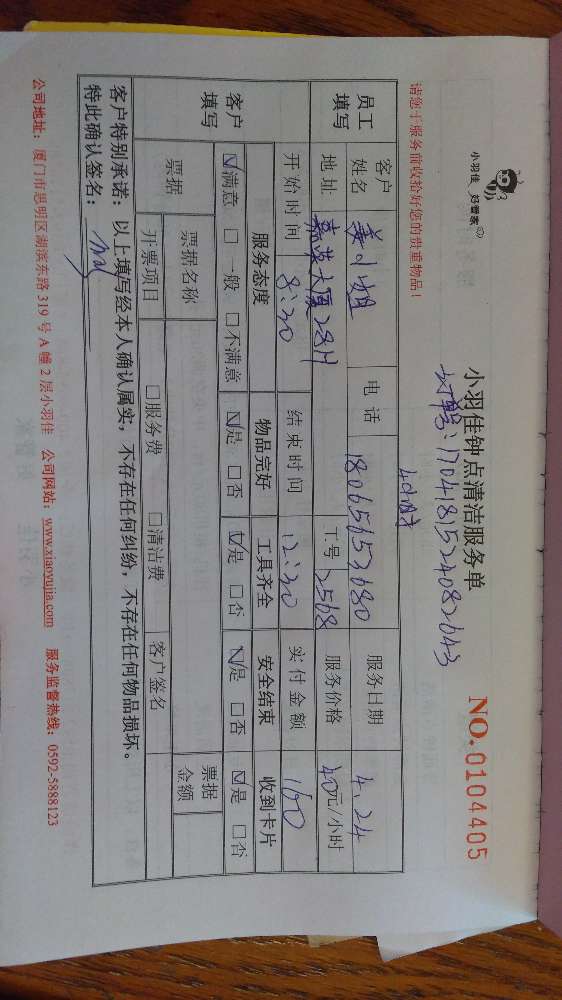 小羽佳 好管家
小羽佳钟点清洁服务单
NO.0104405
订单号:1704181524082643
请您于服务前收拾好您的贵重物品!
4小时
员工填写 客户姓名 姜小姐 电话 18065653680 服务日期 4.24
地址: 嘉英大厦28H 工号 2568 服务价格 40元/小时
客户填写 开始时间 8:30 结束时间 12:30 实付金额 160
服务态度 物品完好 工具齐全 安全结束 收到卡片
☑满意 □一般 □不满意 ☑是 □否 ☑是 □否 ☑是 □否 ☑是 □否
票据 票据名称 票据金额
开票项目 □服务费 □清洁费 客户签名
客户特别承诺:以上填写经本人确认属实,不存在任何纠纷,不存在任何物品损坏。
特此确认签名:
公司地址:厦门市思明区湖滨东路319号A幢2层小羽佳 公司网站:www.xiaoyujia.com 服务监督热线:0592-5888123